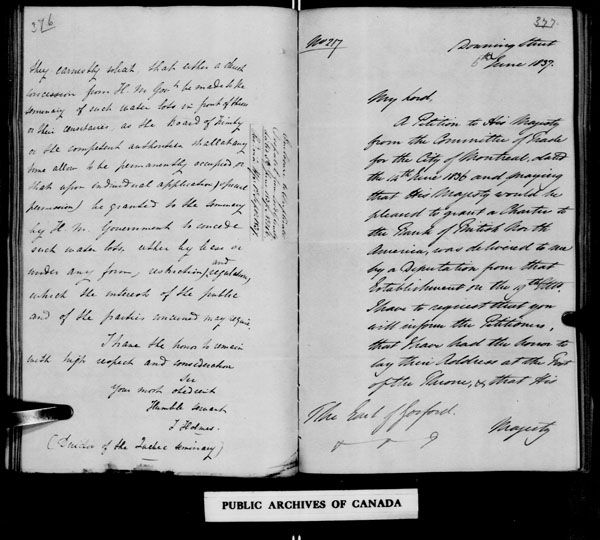 376
they earnestly that either a direct
concession from H. M. Govt be made to the
Seminary of such water lots in front of these
or their censitaires, as the Board of Trinity
or the competent authorities shall at any
time allow to be permanently occupied, or
that upon individual application, special
permission be granted to the Seminary
by H. M. Government to concede
such water lots, either by lease or
under any form, restriction, and regulation,
which the interests of the public
and of the parties concerned may require.
I have the honor to remain
with high respect and consideration
Sir
Your most obedient
Humble servant
J Holmes
(Director of the Quebec Seminary)
377.
No 217
Downing Street
6th June 1837.
My Lord,
A Petition to His Majesty
from the Committee of Trade
for the City of Montreal, dated
the 4th June 1836 and praying
that His Majesty would be
pleased to grant a Charter to
the Bank of British North
America, was delivered to me
by a Deputation from that
Establishment on the 19th Ulto.
I have to request that you
will inform the Petitioners,
that I have had the honor to
lay their Address at the Foot
of the Throne, & that His
The Earl of Gosford.
Majesty
PUBLIC ARCHIVES OF CANADA